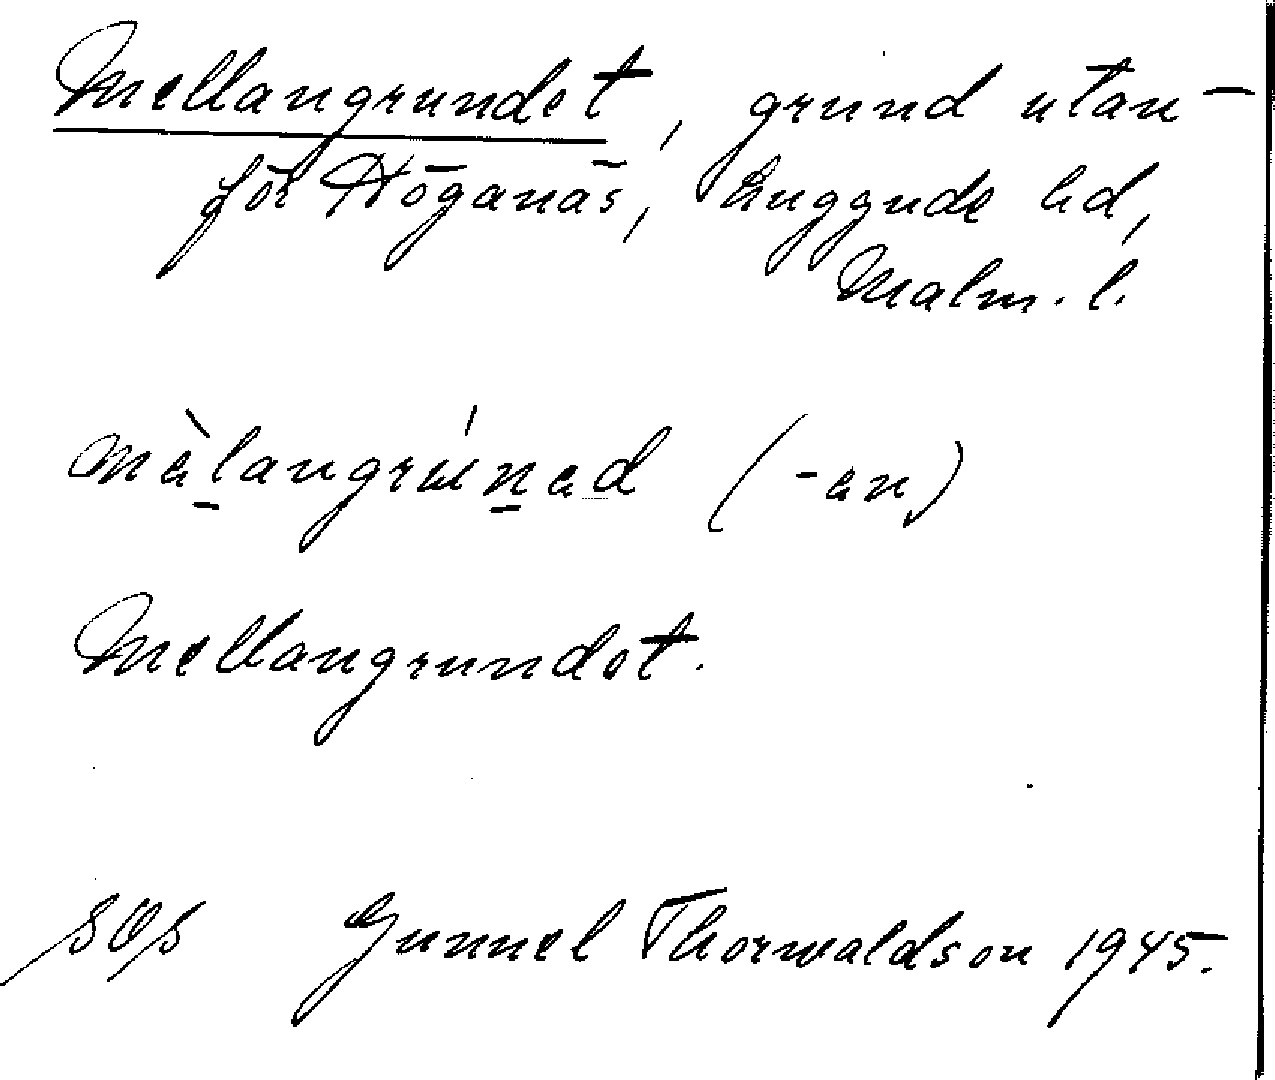 Mellangrundet, grund utan-
för Höganäs, Luggude hd,
Malm. l.
mèlangrúnad (-an)
Mellangrundet.
SOS Gunnel Thorwaldson 1945.